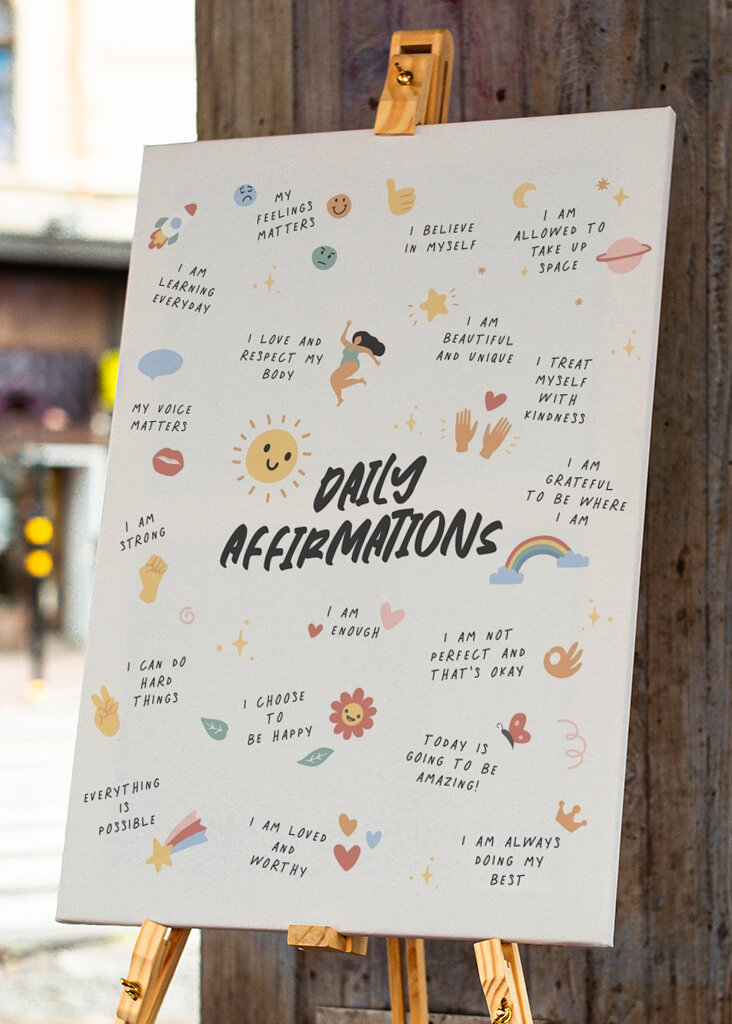 MY
FEELINGS
MATTERS
I BELIEVE
IN MYSELF
I AM
ALLOWED TO
TAKE UP
SPACE
I AM
LEARNING
EVERYDAY
I LOVE AND
RESPECT MY
BODY
I AM
BEAUTIFUL
AND UNIQUE
I TREAT
MYSELF
WITH
KINDNESS
MY VOICE
MATTERS
I AM
GRATEFUL
TO BE WHERE
I AM
DAILY
AFFIRMATIONS
I AM
STRONG
I AM
ENOUGH
I AM NOT
PERFECT AND
THAT'S OKAY
I CAN DO
HARD
THINGS
I CHOOSE
TO
BE HAPPY
TODAY IS
GOING TO BE
AMAZING!
EVERYTHING
IS
POSSIBLE
I AM LOVED
AND
WORTHY
I AM ALWAYS
DOING MY
BEST